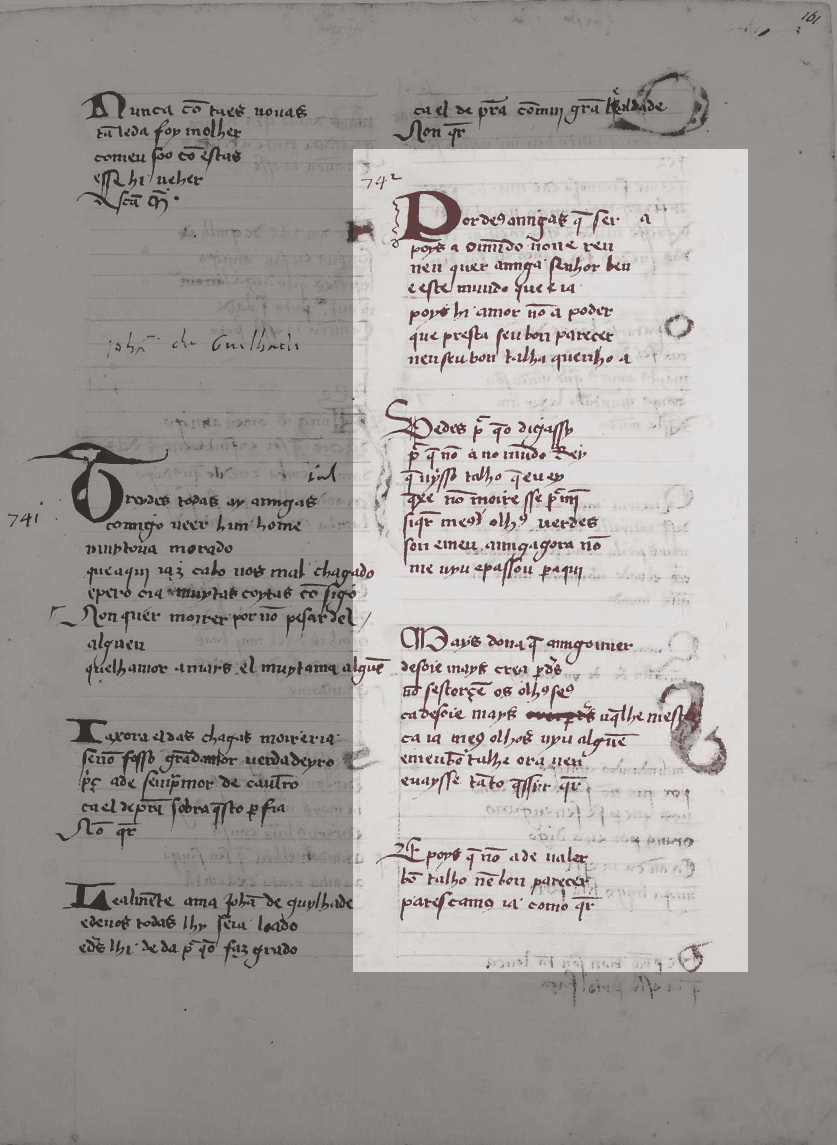 161
Nunca cō taes nouas
tā leda foy molher
comeu soo cō estas
esse hi ueher
741
johā de Guilhade
Treydes todas ay amigas
comigo veer hun home
muyto namorado
que aqui iaz cabo uos mal chagado
epero cia muytas coytas cō sigo
Non quer morrer por nō pesar del
alguen
quelhamor a mays el muytama alguē
Ia xora el das chagas morreria
senō fosso grādamor uerdadeyro
cael de prā sobra q̄sto perfia
Nō q̄r
Lealmēte ama johā de guylhade
e de uos todas lhy seia loado
e ds̄ lhi de da p̄ q̄o faz grado
ca el de prā comuj grā lealdade
Non q̄r
742
Por deꝯ amigas q̄ ser a
poys a omūdo nō ue ren
nen quer amiga senhor ben
e este mundo que e ia
poys hi amor nō a poder
que presta seu bon parecer
nen seu bon talha quenho a
Vedes p̄ q̄o digassy
p̄ q̄ nō a no mūdo Rey
q̄ uysso talho q̄ eu ey
que nō moiresse p̄ mī
siq̄r meꝯ olhꝯ uerdes
son e meu amigagora nō
me uyu e passou peraqui
Mays dona q̄ amigo ouuer
desoie mays crea p̄ ds̄
nō sesforçē os olhꝯ seꝯ
ca desoie mays nō lhe mest
ca ia meꝯ olhos uyu alguē
e meu bō talhe ora uen
e uaysse tāto q̄ss̄ir q̄r
E poys q̄ nō a de ualer
bō talho nē bon parecer
parescamꝯ ia como q̄r